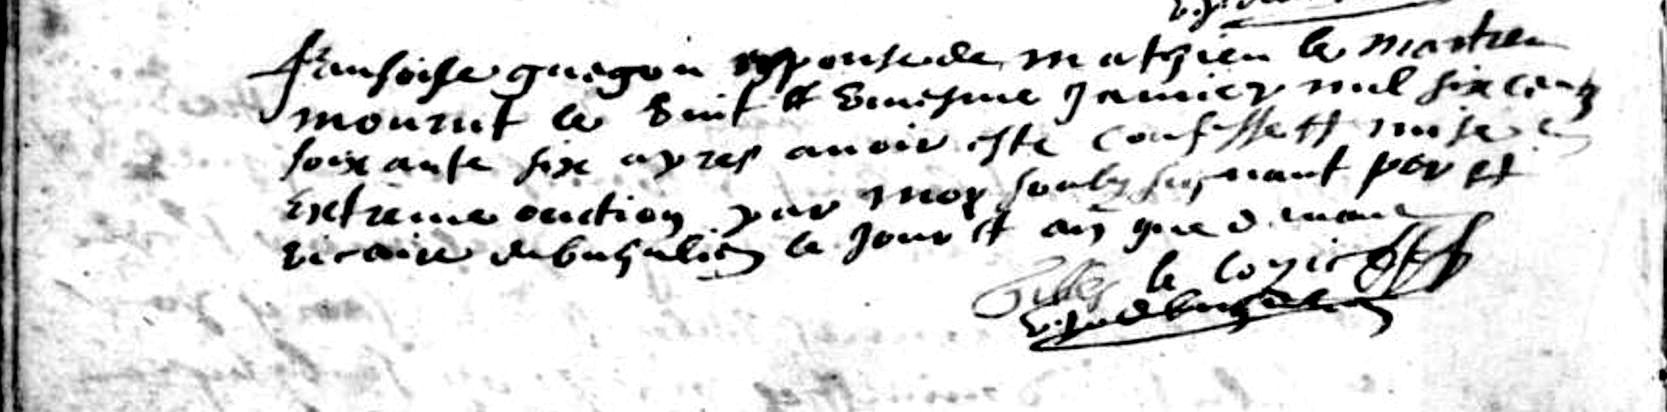 fransoise guegon espouse de mathieu le mastren
mourut le vint et uniesme janvier mil six cents
soixante six apres avoir este confesse et mise en
extreme onction par moy soubz signant pbr et
vicaire de buhulien le jour et an que devant
Gilles le loyic
v. de buhulien